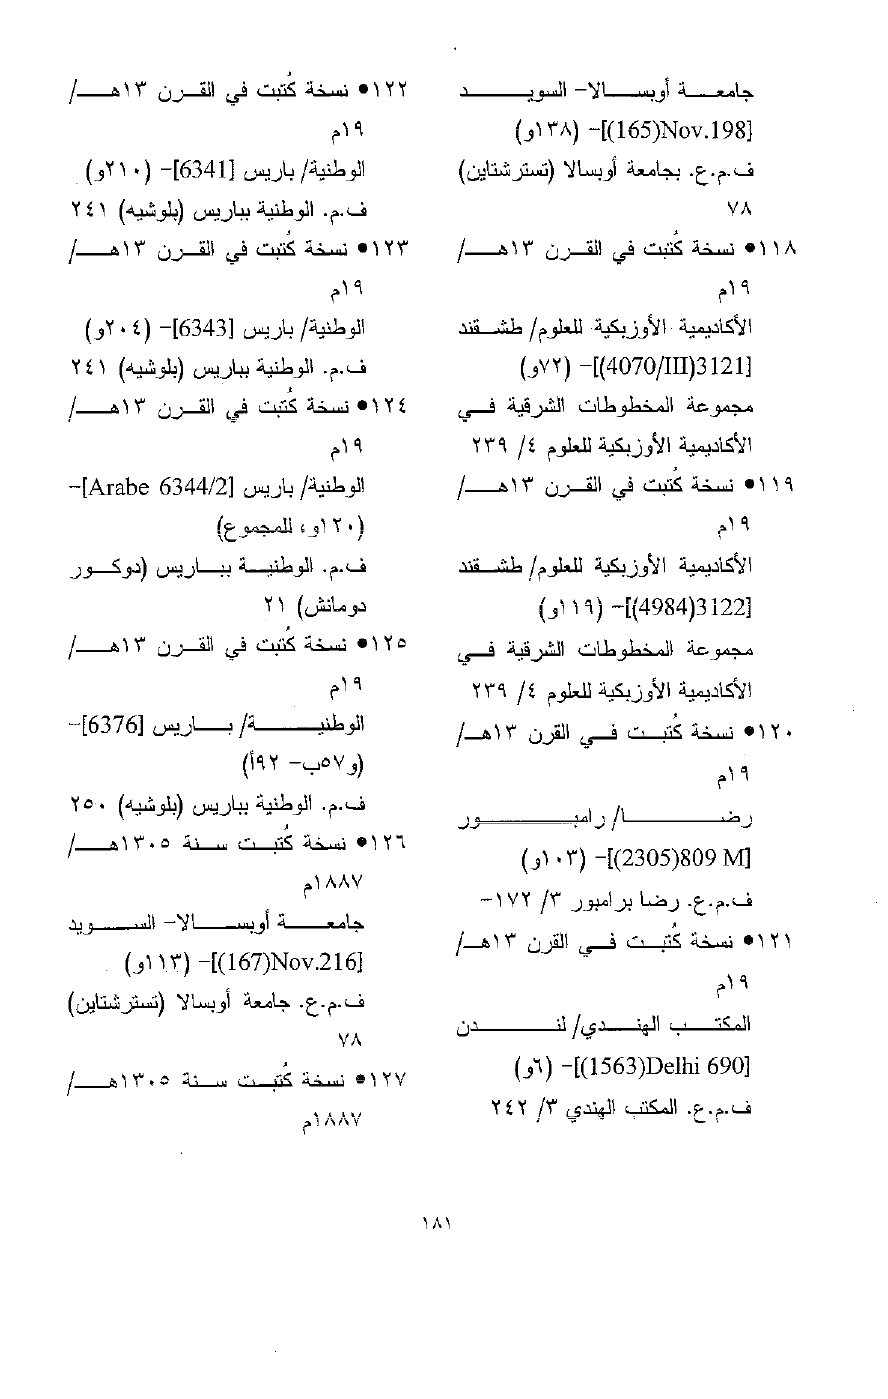 جامعة أوبسالا- السويد
[165)Nov.198)]- (١٣٨و)
ف.م.ع. بجامعة أوبسالا (تسترشتاين)
٧٨
١١٨• نسخة كُتبت في القرن ١٣هـ/
١٩م
الأكاديمية الأوزبكية للعلوم/ طشقند
[4070/III)3121)]- (٧٢و)
مجموعة المخطوطات الشرقية في
الأكاديمية الأوزبكية للعلوم ٤/ ٢٣٩
١١٩• نسخة كُتبت في القرن ١٣هـ/
١٩م
الأكاديمية الأوزبكية للعلوم/ طشقند
[4984)3122)]- (١١٩و)
مجموعة المخطوطات الشرقية في
الأكاديمية الأوزبكية للعلوم ٤/ ٢٣٩
١٢٠• نسخة كُتبت في القرن ١٣هـ/
١٩م
رضا/ رامبور
[2305)809 M)]- (١٠٣و)
ف.م.ع. رضا برامبور ٣/ ١٧٢-
١٢١• نسخة كُتبت في القرن ١٣هـ/
١٩م
المكتب الهندي/ لندن
[1563)Delhi 690)]- (٦و)
ف.م.ع. المكتب الهندي ٣/ ٢٤٢
١٢٢• نسخة كُتبت في القرن ١٣هـ/
١٩م
الوطنية/ باريس [6341]- (٢١٠و)
ف.م. الوطنية بباريس (بلوشيه) ٢٤١
١٢٣• نسخة كُتبت في القرن ١٣هـ/
١٩م
الوطنية/ باريس [6343]- (٢٠٤و)
ف.م. الوطنية بباريس (بلوشيه) ٢٤١
١٢٤• نسخة كُتبت في القرن ١٣هـ/
١٩م
الوطنية/ باريس [Arabe 6344/2]-
(١٢٠و، للمجموع)
ف.م. الوطنية بباريس (دوكور
دومانش) ٢١
١٢٥• نسخة كُتبت في القرن ١٣هـ/
١٩م
الوطنية/ باريس [6376]-
(و٥٧ب- ٩٢أ)
ف.م. الوطنية بباريس (بلوشيه) ٢٥٠
١٢٦• نسخة كُتبت سنة ١٣٠٥هـ/
١٨٨٧م
جامعة أوبسالا- السويد
[167)Nov.216)]- (١١٣و)
ف.م.ع. جامعة أوبسالا (تسترشتاين)
٧٨
١٢٧• نسخة كُتبت سنة ١٣٠٥هـ/
١٨٨٧م
١٨١